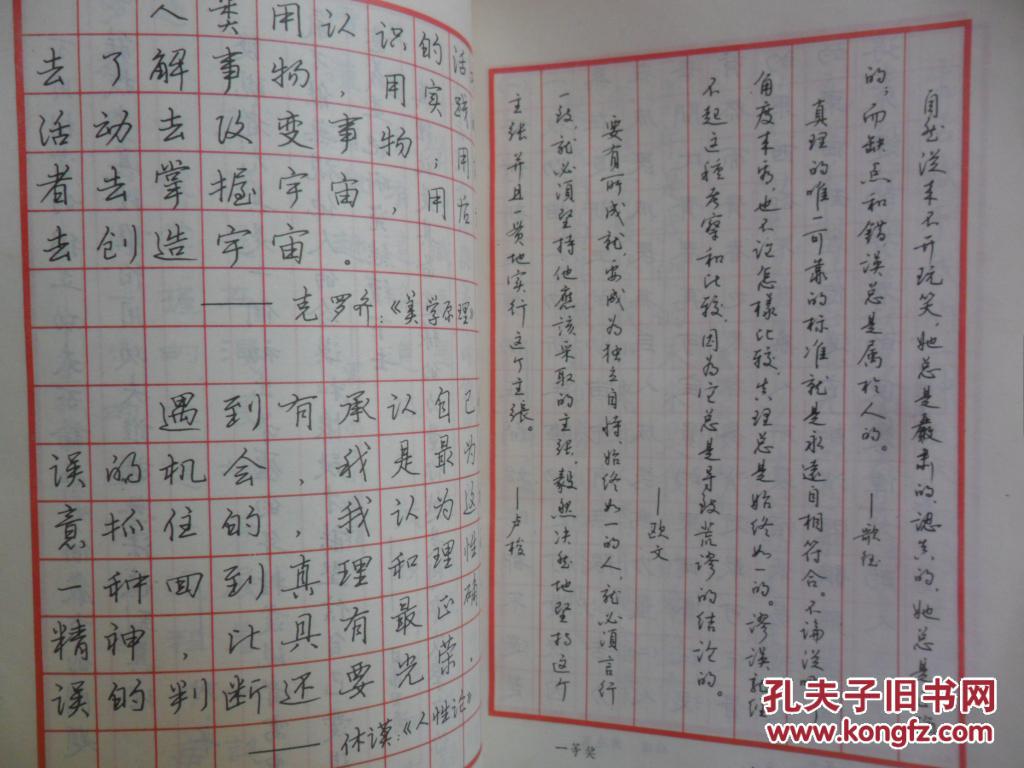 人类用认识的活
去了解事物，用实践
活动去改变事物；用
者去掌握宇宙，用
去创造宇宙。
——克罗齐：《美学原理》
遇到有承认自己
误的机会，我是最为
意抓住的，我认为这
一种回到真理和理性
精神，比具有最正确
误的判断还要光荣。
——休谟：《人性论》
自然从来不开玩笑，她总是严肃的、认真的，她总是
的；而缺点和错误总是属于人的。
——歌德
真理的唯一可靠的标准就是永远自相符合。不论从
角度来看，也不论怎样比较，真理总是始终如一的。谬误就经
不起这种考察和比较，因为它总是导致荒谬的结论的。
——欧文
要有所成就，要成为独立自恃、始终如一的人，就必须言行
一致，就必须坚持他应该采取的主张，毅然决然地坚持这个
主张并且一贯地实行这个主张。
——卢梭
一等奖
孔夫子旧书网
www.kongfz.com